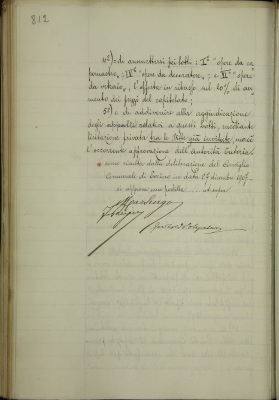 812
4°) = di ammettersi pei lotti: I° opere da ca
pomastro, IV° opere da decoratore, e VI° opere
da vetraio, l'offerta in rialzo sul 10% di au
mento dei prezzi del capitolato;
5°) = di addivenire alla aggiudicazione
degli appalti relativi a questi lotti, mediante
licitazione privata tra le Ditte già invitate, previa
l'occorrente approvazione dell'autorità tutoria
come risulta dalla deliberazione del Consiglio
Comunale di in data 27 dicembre 1907.
si appone una postilla